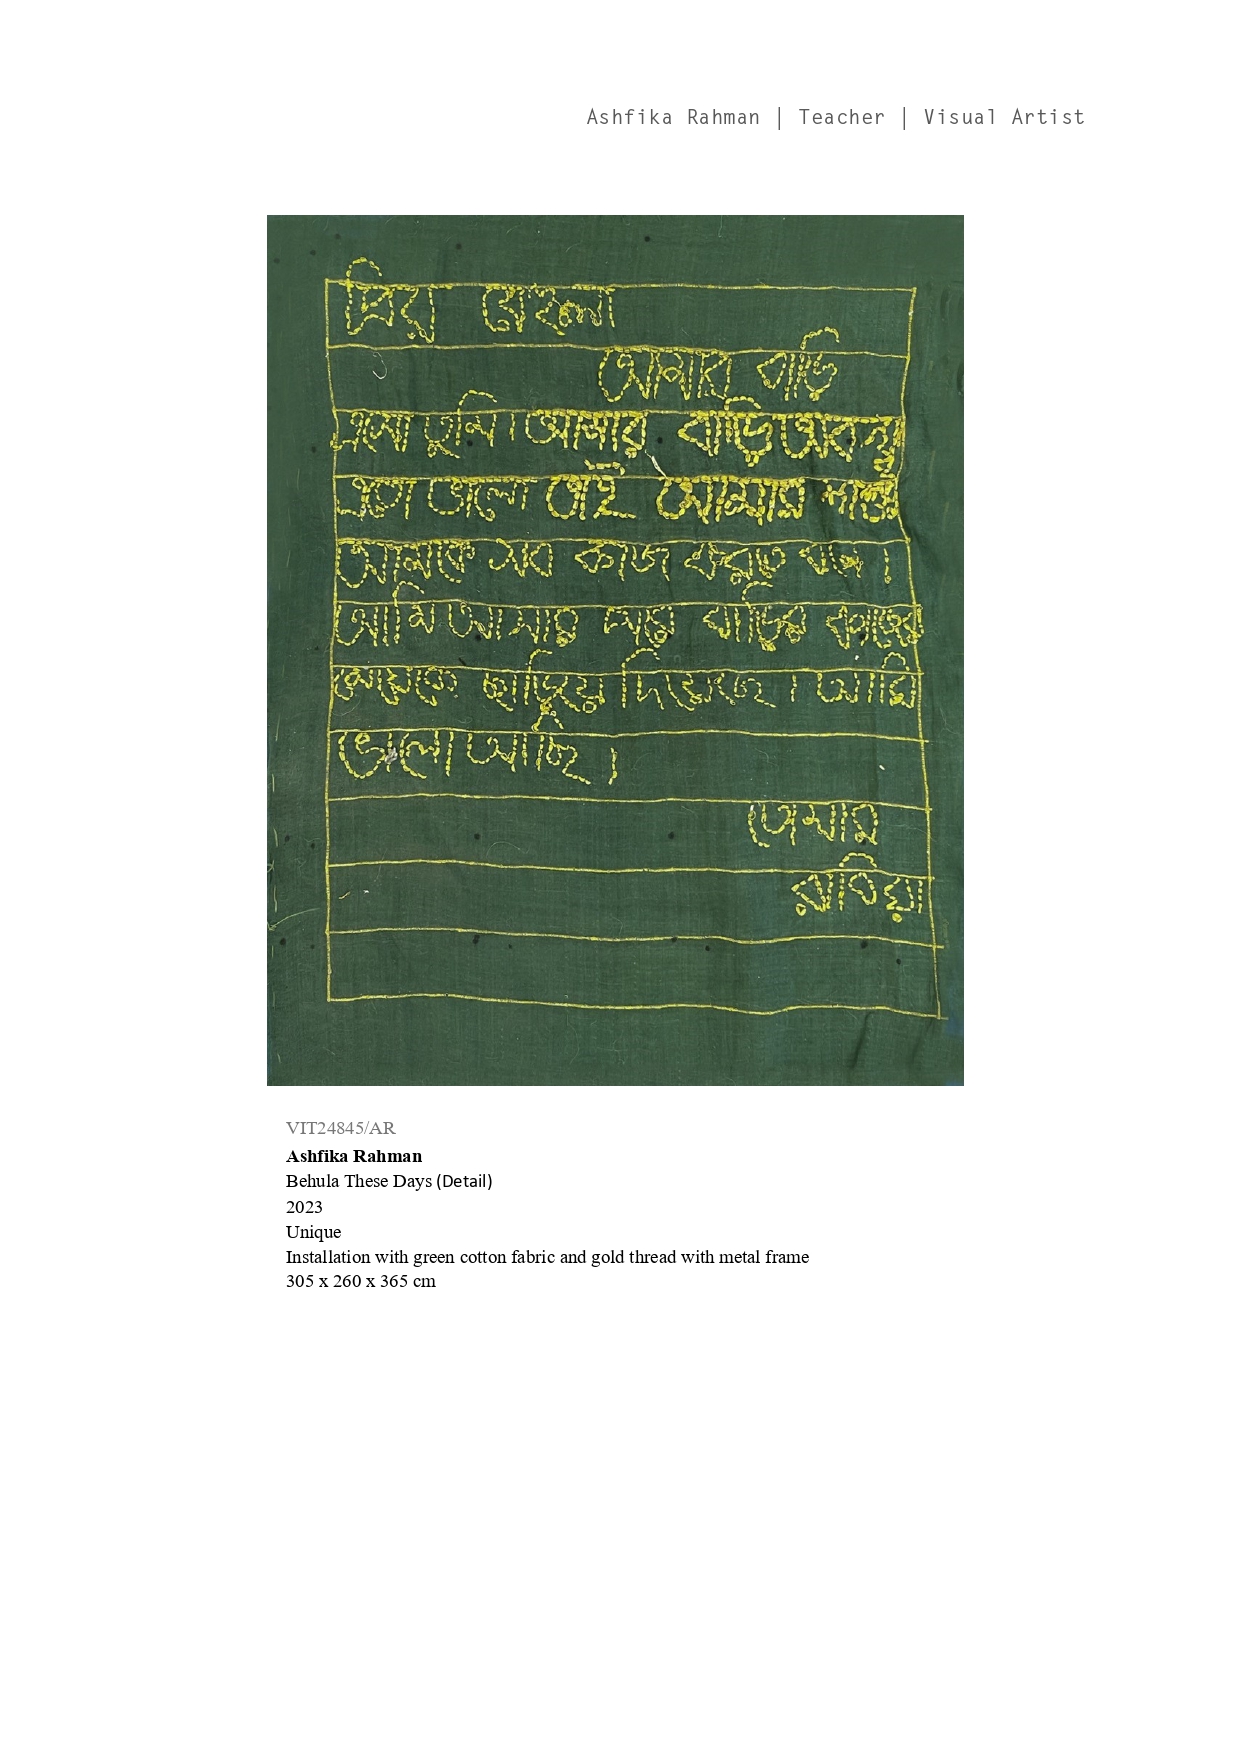 Ashfika Rahman | Teacher | Visual Artist
প্রিয় বেহুলা
আমার বাড়ি
এসো তুমি। আমার বাড়ি
এতো ভালো নাই আমার
আমাকে সব কাজ করতে বলে।
আমি আমার বাড়ির কাজের
মেয়েকে ছাড়িয়ে দিয়েছে। আমি
ভালো আছি।
তোমার
রাবিয়া
VIT24845/AR
Ashfika Rahman
Behula These Days (Detail)
2023
Unique
Installation with green cotton fabric and gold thread with metal frame
305 x 260 x 365 cm